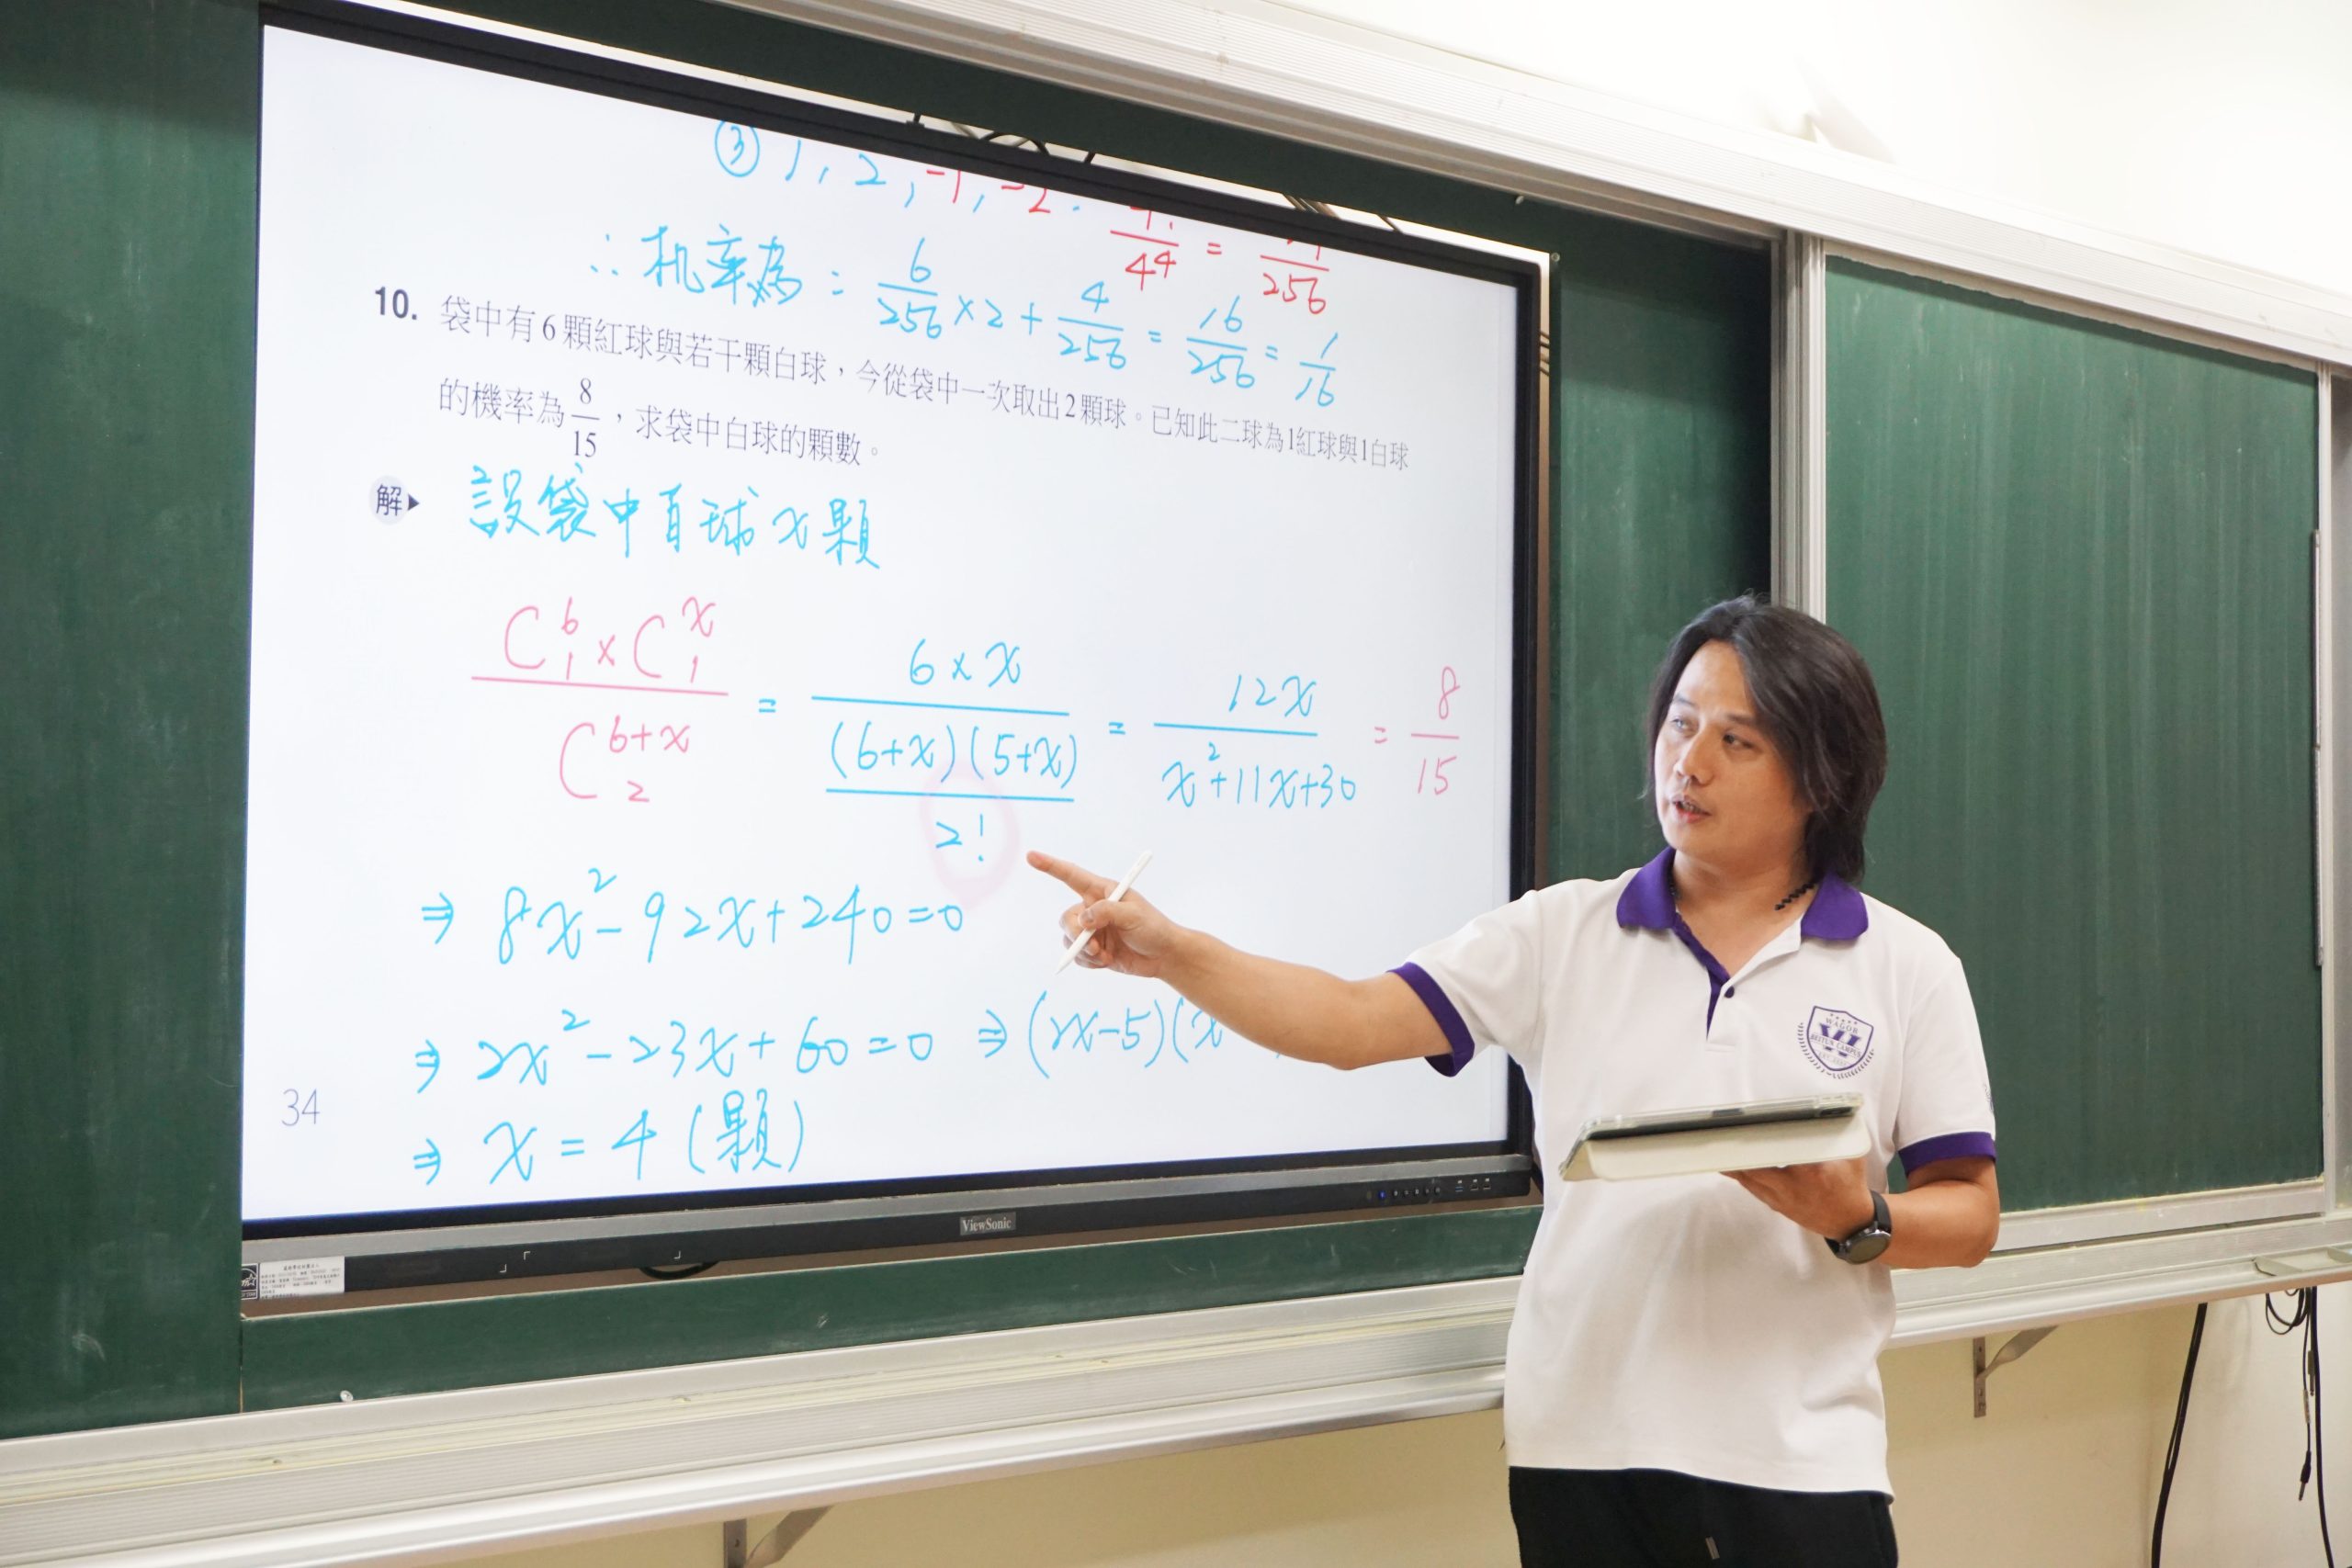 ③ 1, 2, -1, -2. 4!/4⁴ = /256
∴ 机率為: 6/256 × 2 + 4/256 = 16/256 = 1/16
10. 袋中有6顆紅球與若干顆白球，今從袋中一次取出2顆球。已知此二球為1紅球與1白球
的機率為 8/15，求袋中白球的顆數。
解▶ 設袋中白球 x 顆
C⁶₁ × C ˣ₁ / C⁶⁺ˣ₂ = 6 × x / ((6+x)(5+x) / 2!) = 12x / x²+11x+30 = 8/15
⇒ 8x² - 92x + 240 = 0
⇒ 2x² - 23x + 60 = 0 ⇒ (2x-5)(x
⇒ x = 4 (顆)
34
ViewSonic
WAGOR
BEITUN CAMPUS